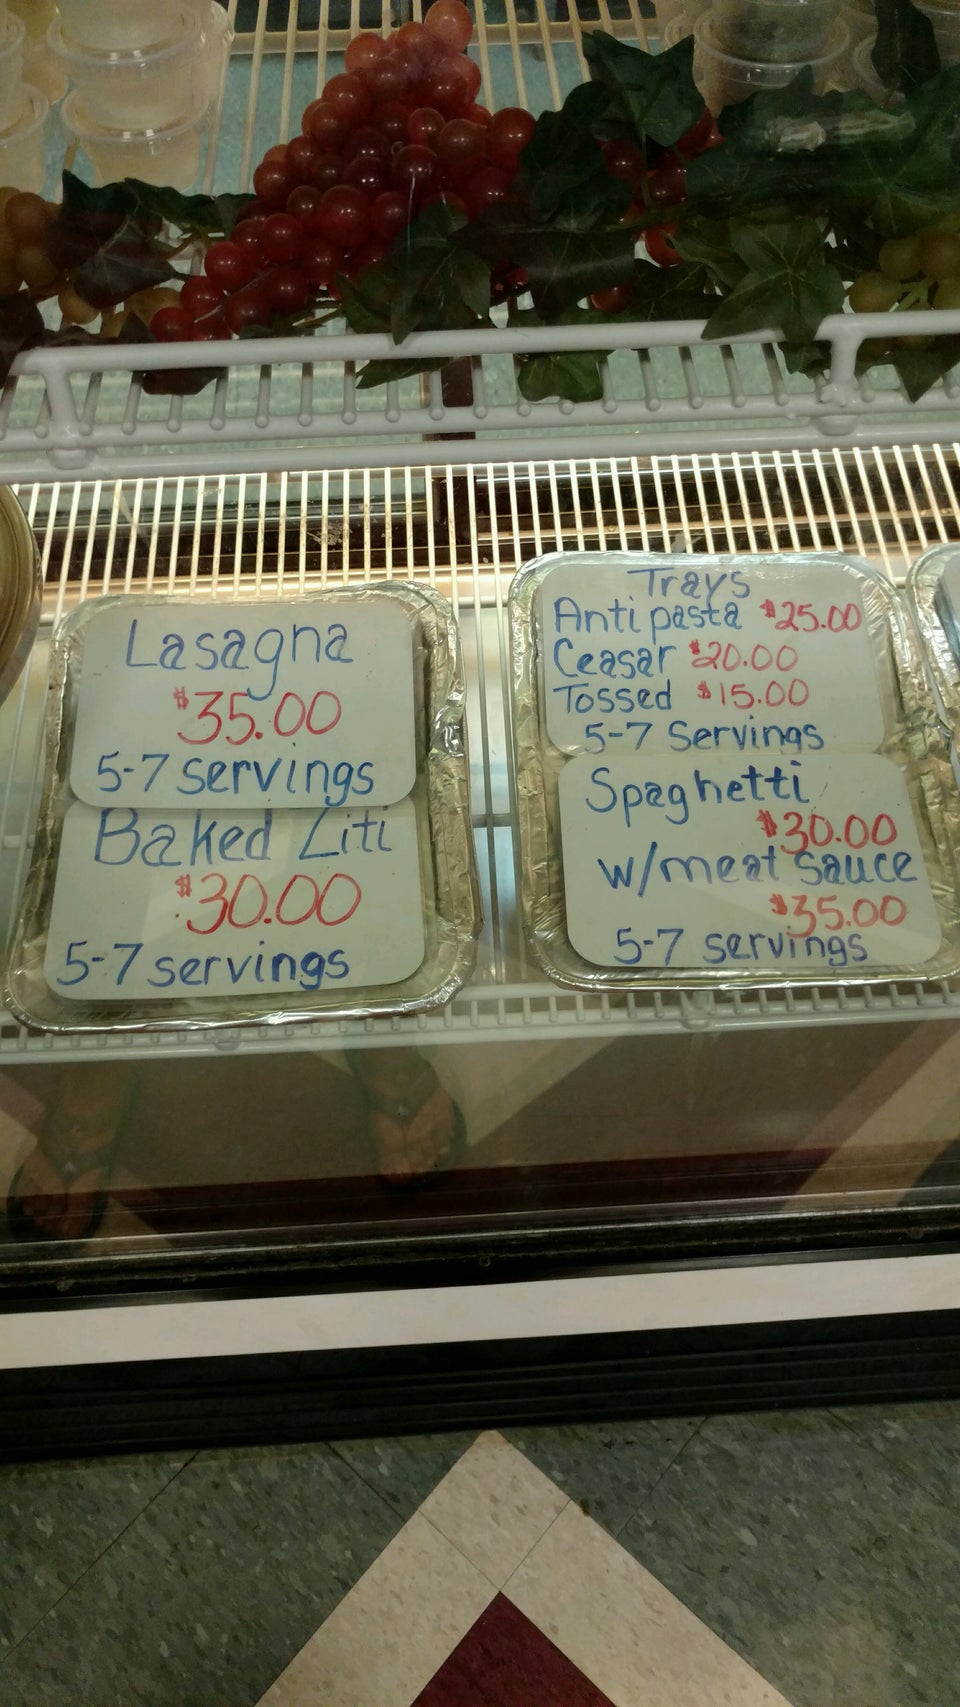 Lasagna
$35.00
5-7 servings
Baked Ziti
$30.00
5-7 servings
Trays
Antipasta $25.00
Ceasar $20.00
Tossed $15.00
5-7 Servings
Spaghetti
$30.00
w/meat sauce
$35.00
5-7 servings